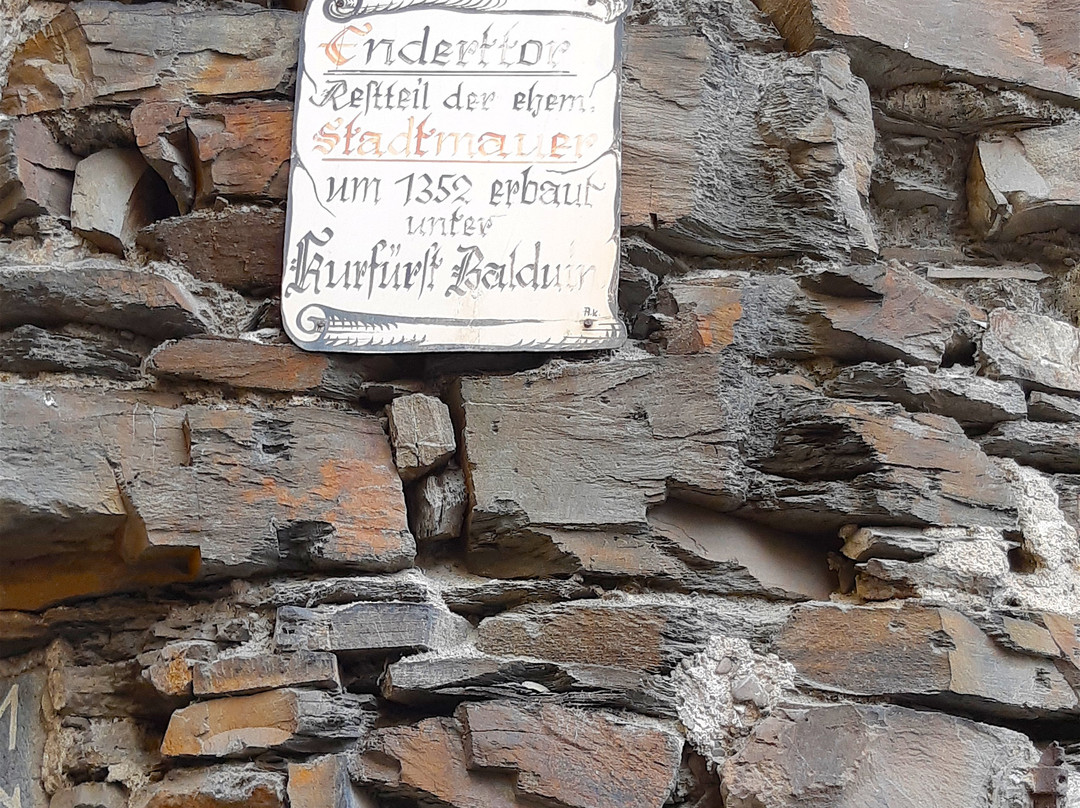 Enderttor
Restteil der ehem.
Stadtmauer
um 1352 erbaut
unter
Kurfürst Balduin
A.K.
1